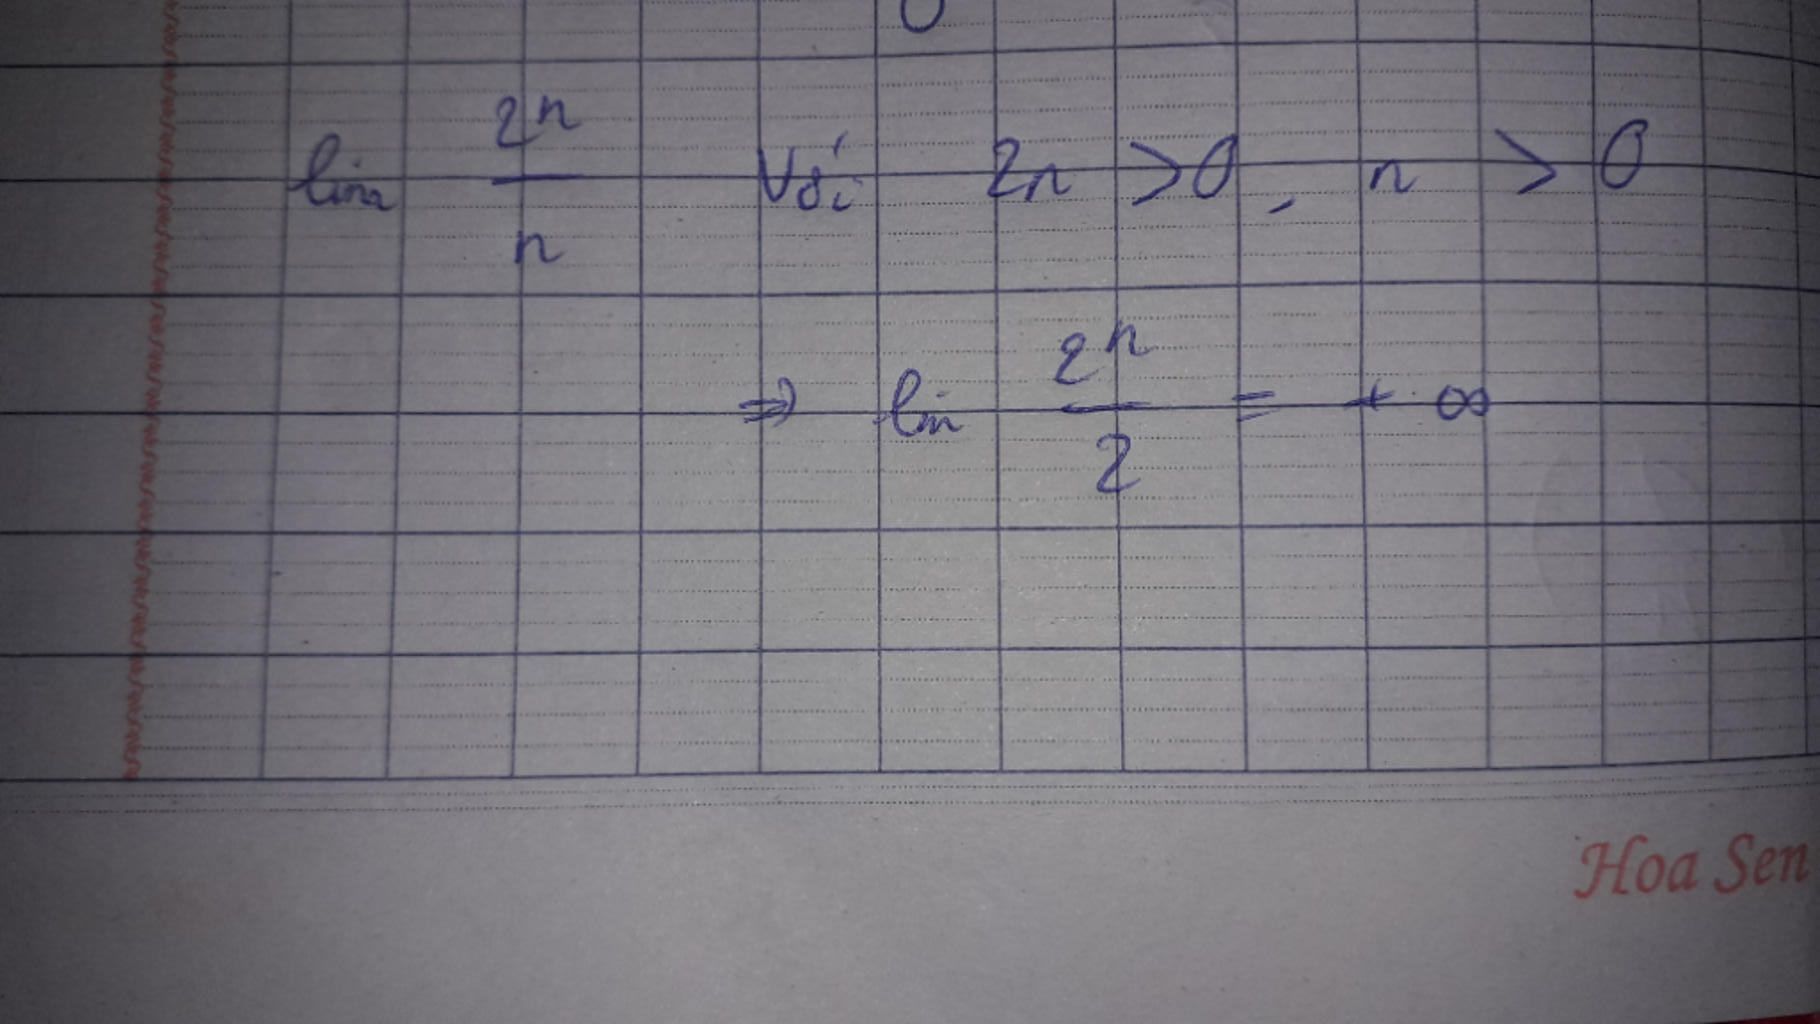 lim 2^n/n với 2n > 0, n > 0
⇒ lim 2^n/2 = +∞
Hoa Sen